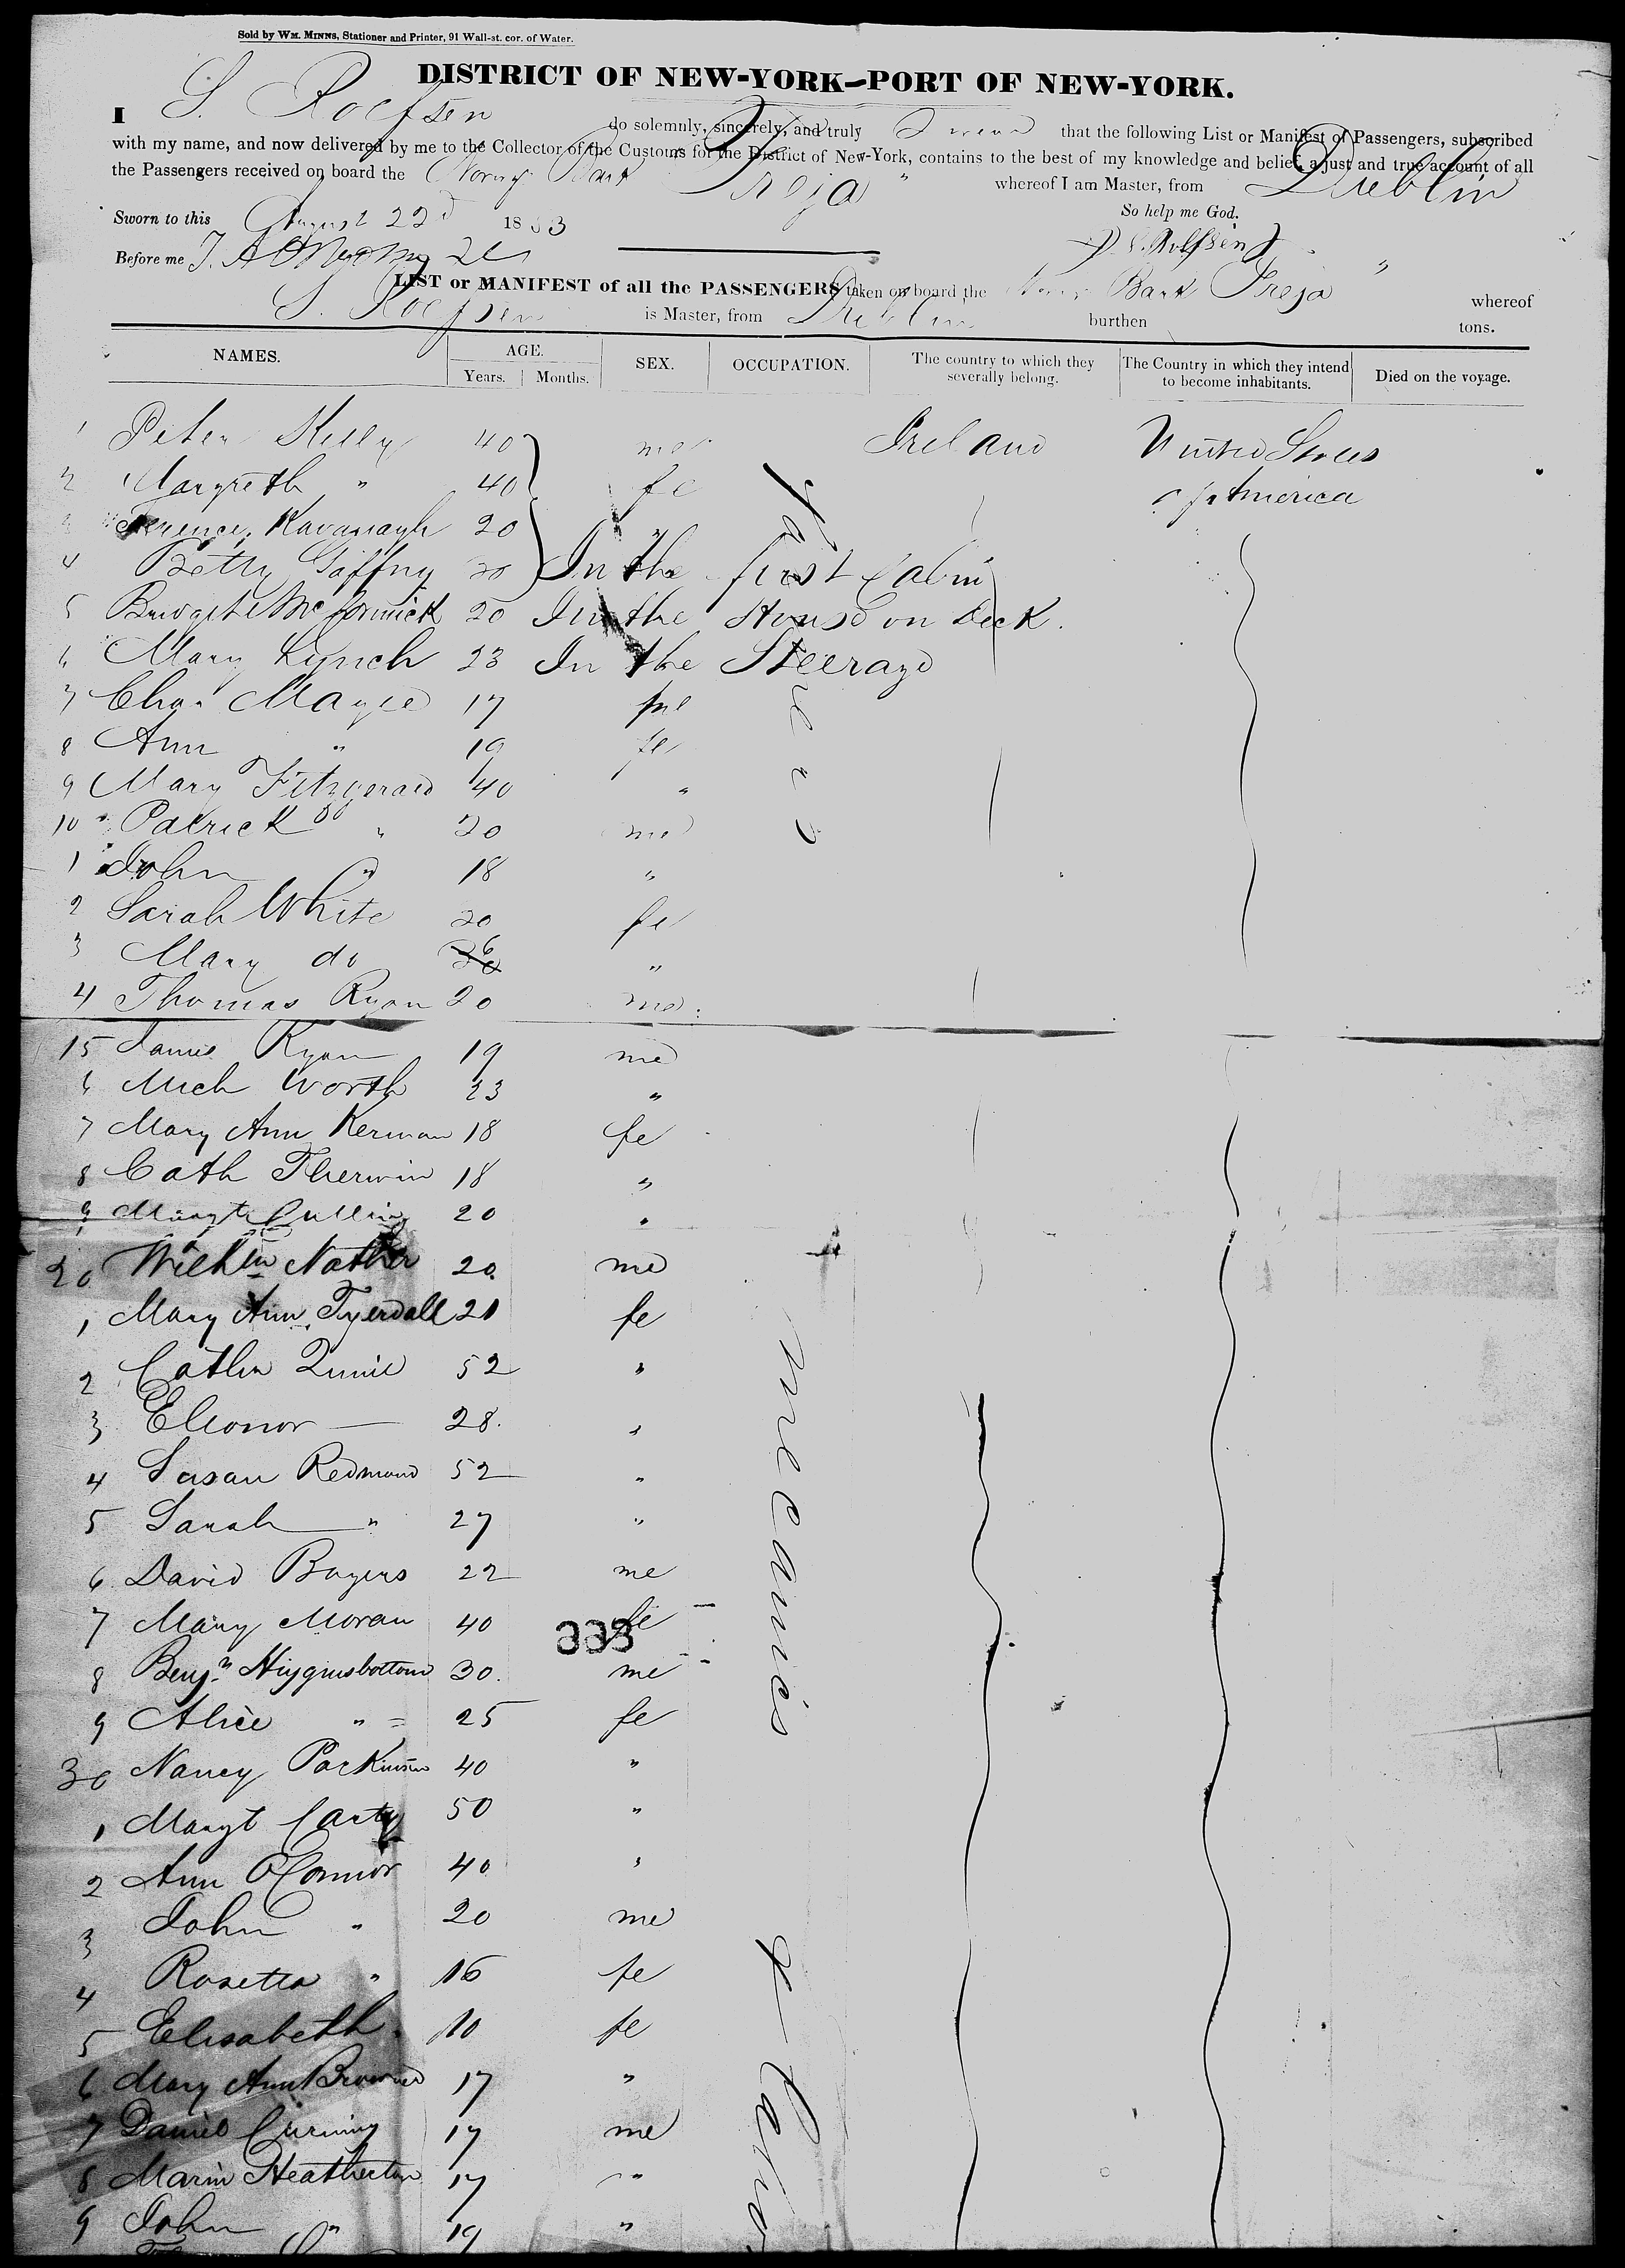 Sold by WM. MINNS, Stationer and Printer, 91 Wall-st. cor. of Water.
DISTRICT OF NEW-YORK—PORT OF NEW-YORK.
I S. Roefsen do solemnly, sincerely, and truly Swear that the following List or Manifest of Passengers, subscribed
with my name, and now delivered by me to the Collector of the Customs for the District of New-York, contains to the best of my knowledge and belief, a just and true account of all
the Passengers received on board the Norwg. Bark Freja whereof I am Master, from Dublin
So help me God.
Sworn to this August 22d 1853
Before me
LIST or MANIFEST of all the PASSENGERS taken on board the Norwg Bark Freja whereof
S. Roefsen is Master, from Dublin burthen tons.
NAMES. AGE. SEX. OCCUPATION. The country to which they severally belong. The Country in which they intend to become inhabitants. Died on the voyage.
Years. Months.
1 Peter Kelly 40 ma Ireland United States
2 Margreth " 40 fe of America
3 Terence Kavanagh 20 "
4 Betty Gaffny 20 In the first Cabin
5 Bridget McCormick 20 In the House on Deck.
6 Mary Lynch 23 In the Steerage
7 Chas Magee 17 me
8 Ann " 19 fe
9 Mary Fitzgerald 40 "
10 Patrick do " 20 me
1 John " 18 "
2 Sarah White 20 fe
3 Mary do "
4 Thomas Ryan 20 me
15 James Ryan 19 me
6 Mich Worth 23 "
7 Mary Ann Kernan 18 fe
8 Cath 18 "
9 Margt Cullin 20 "
20 20 me
1 Mary Ann Tyerdall 21 fe
2 52 "
3 Eleonor — 28. "
4 Susan Redmond 52 "
5 Sarah " 27 "
6 David Boyers 22 me
7 Mary Moran 40 fe
333
8 Benjn Higginsbottom 30. me
9 Alice " 25 fe
30 Nancy Parkinson 40 "
1 Margt Carty 50 "
2 Ann O'Connor 40 "
3 John " 20 me
4 Rosetta " 16 fe
5 Elisabeth " 10 fe
6 Mary Ann 17 "
7 Daniel 17 me
8 Heatherton 17 "
9 John " 19 "
mecanics
&